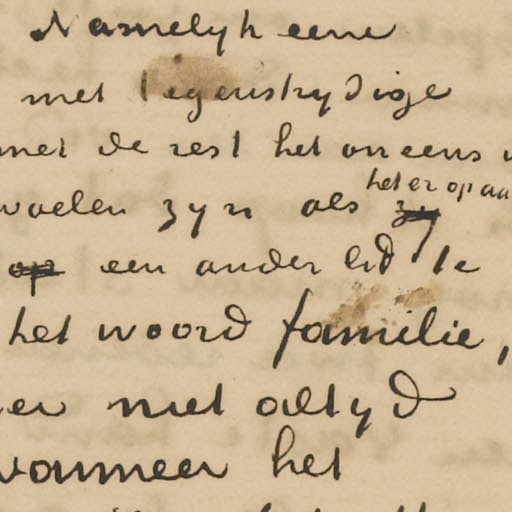 Namelyk eene
met tegenstrydige
met de rest het oneens
voelen zyn als
het er op aa
op een ander lid te
het woord familie,
er niet altyd
wanneer het